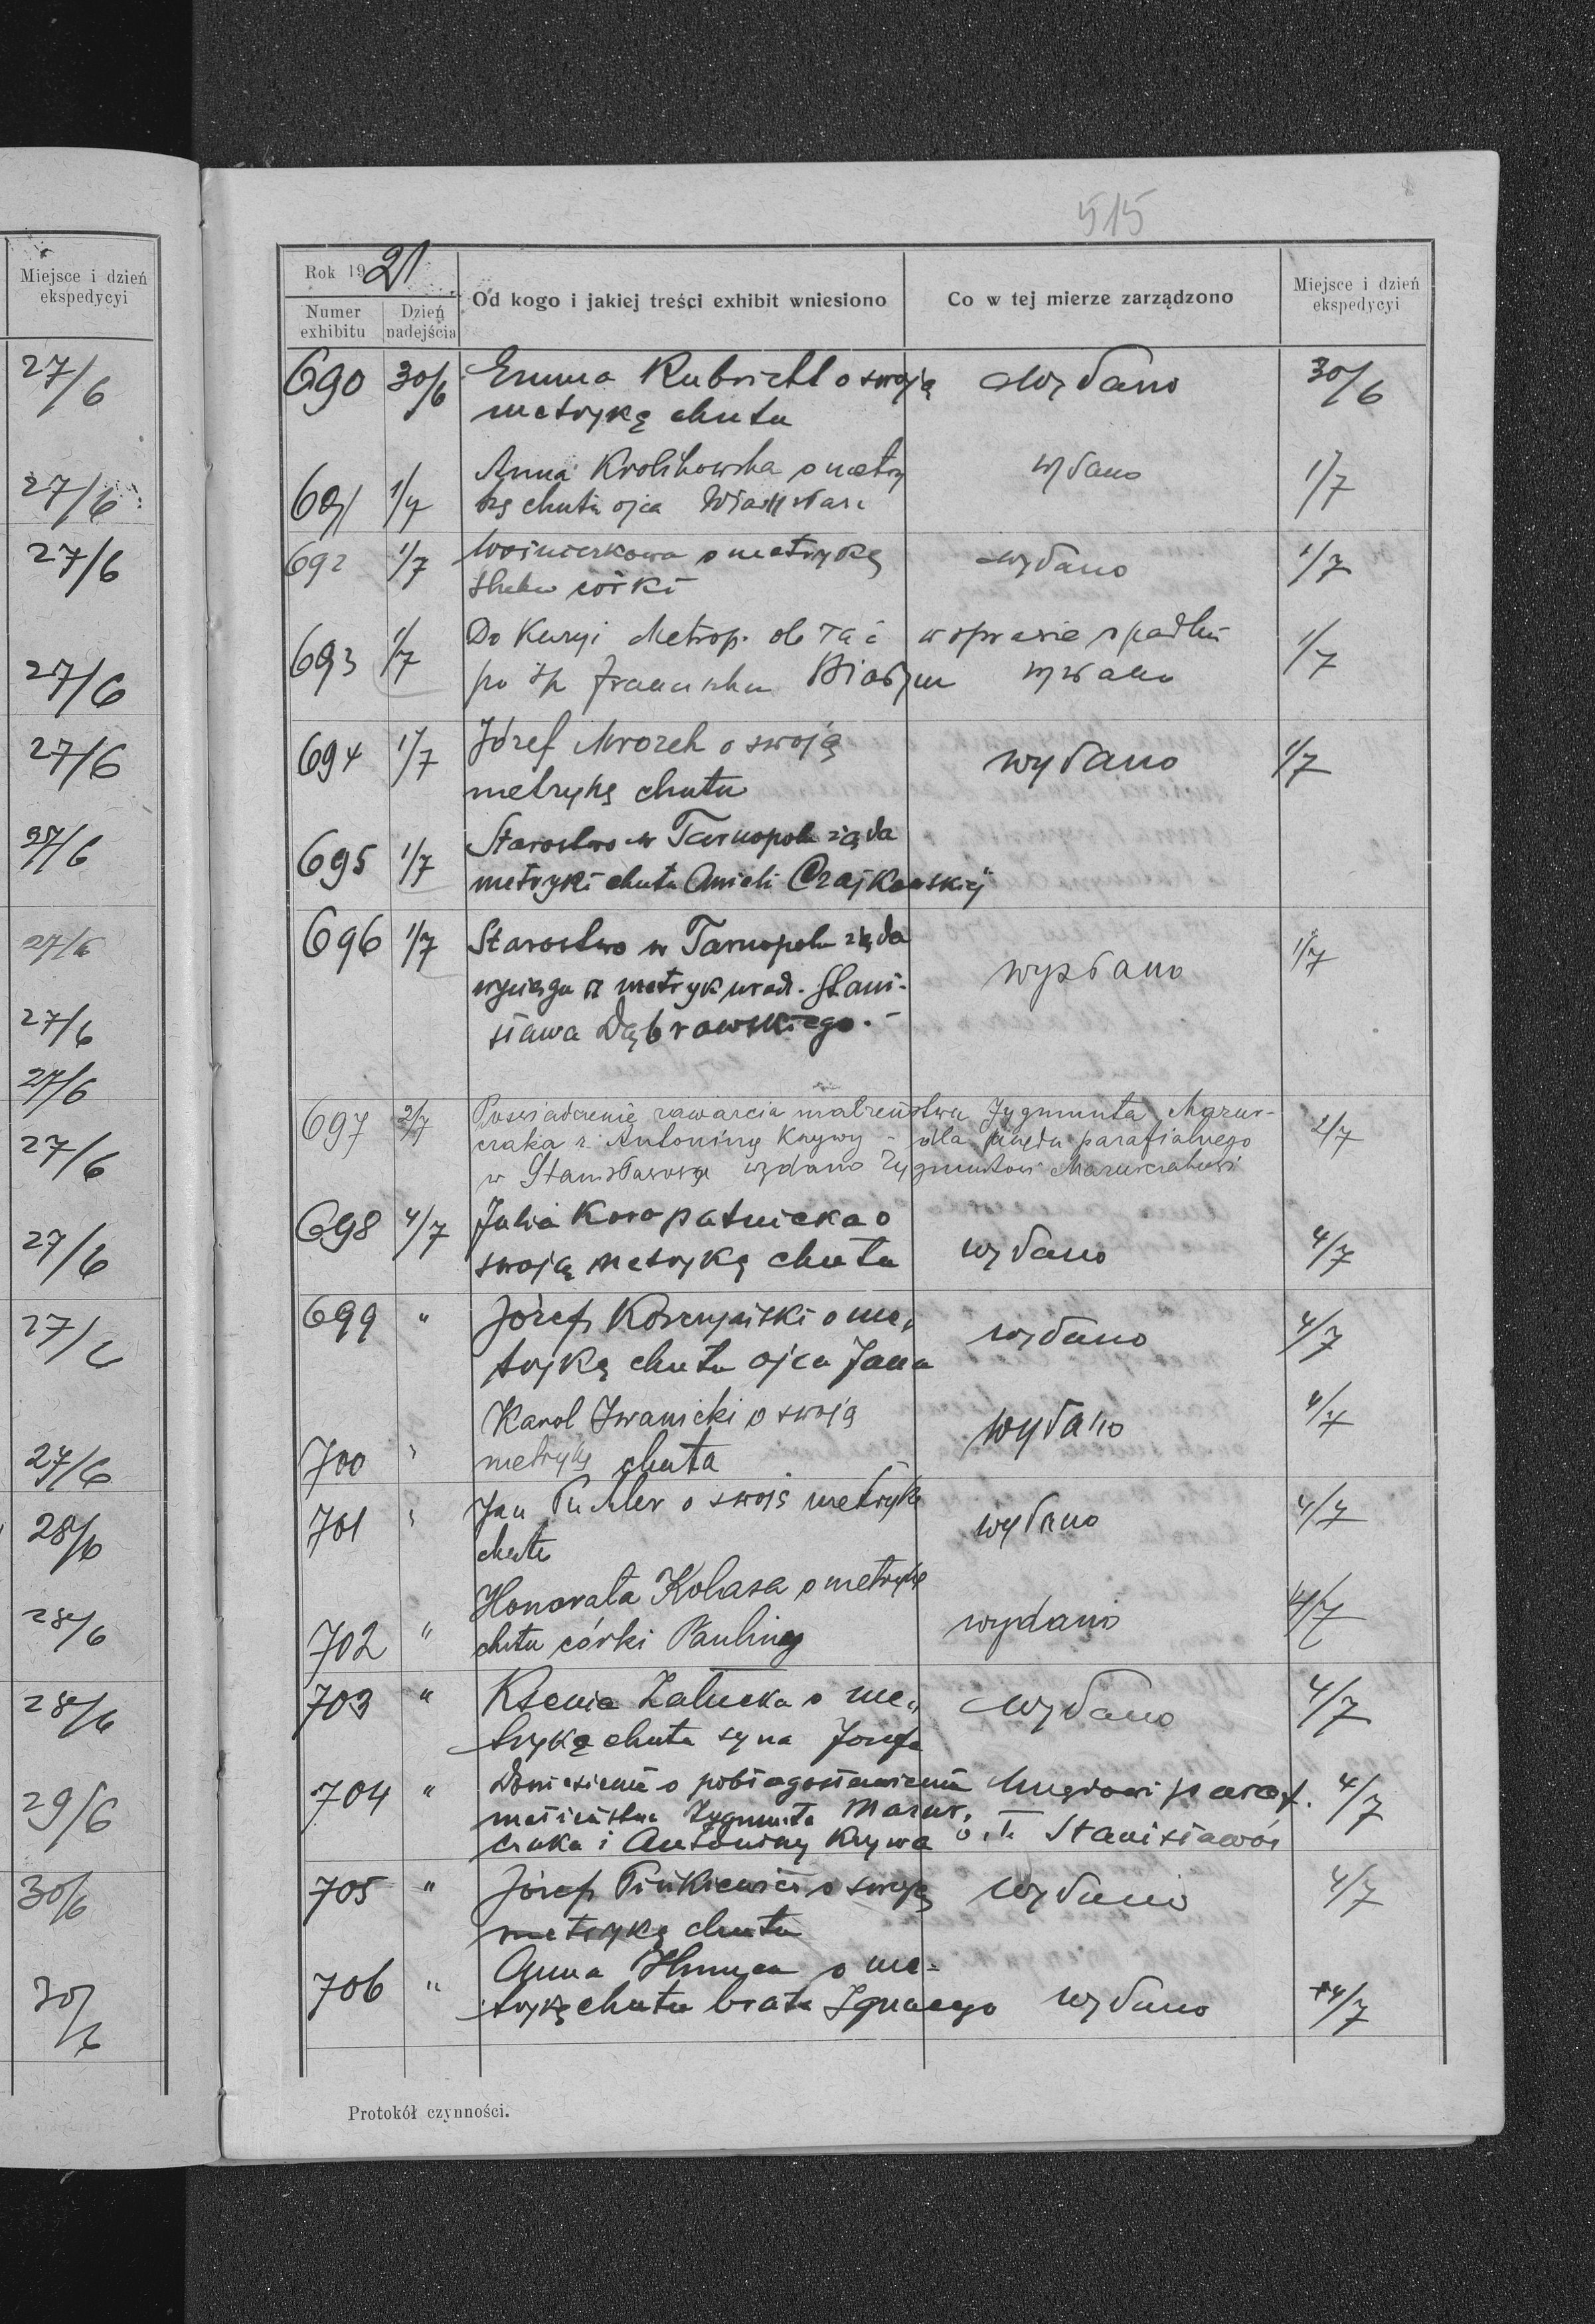 Miejsce i dzień
ekspedycyi
27/6
27/6
27/6
27/6
27/6
27/6
27/6
27/6
27/6
27/6
27/6
27/6
27/6
28/6
28/6
28/6
29/6
30/6
30/6
515
Rok 1921
Numer exhibitu
Dzień nadejścia
Od kogo i jakiej treści exhibit wniesiono
Co w tej mierze zarządzono
Miejsce i dzień ekspedycyi
690 30/6 Emma Rubricht o swoją wydano 30/6
metrykę chutu
691 1/7 Anna Krolikowska o metry wydano 1/7
kę chutu ojca
692 1/7 Woźniczkowa o metrykę wydano 1/7
ślubu córki
693 1/7 Do Kuryi Metrop. ob łać w sprawie spadku 1/7
po śp
694 1/7 Józef Mrozek o swoją wydano 1/7
metrykę chutu
695 1/7 Starostwo w Tarnopolu żąda
metryki chutu Anieli Czajkowskiej
696 1/7 Starostwo w Tarnopolu żąda 1/7
wyciągu z metryk urodz. Stani-
sława Dąbrowskiego.- wysłano
697 2/7 Poświadczenie zawarcia małżeństwa Zygmunta Mazur- 2/7
czaka z Antoniną Krywy - dla urzędu parafialnego
w Stanisławowie wydano Zygmuntowi Mazurczakowi
698 4/7 Julia Koropatnicka o
swoją metrykę chutu wydano 4/7
699 " Józef Korczyński o me„ wydano 4/7
trykę chutu ojca Jana
Karol Iwanicki o swoją wydano 4/7
700 " metrykę chutu
701 " Jan o swoją metrykę wydano 4/7
chutu
Honorata Kolasa o metrykę
702 " chutu córki Pauliny wydano 4/7
703 " Ksenia Załucka o me„ wydano 4/7
trykę chutu syna Józefa
704 " Doniesienie o pobłogosławieniu Urzędowi paraf. 4/7
małżeństwa Zygmunta Mazur„
czaka i Antoniny Krywa o.ł. Stanisławów
705 " Józef Pińkiewicz o swoją wydano 4/7
metrykę chutu
706 " Anna o me-
trykę chutu brata Ignacego wydano 4/7
Protokół czynności.